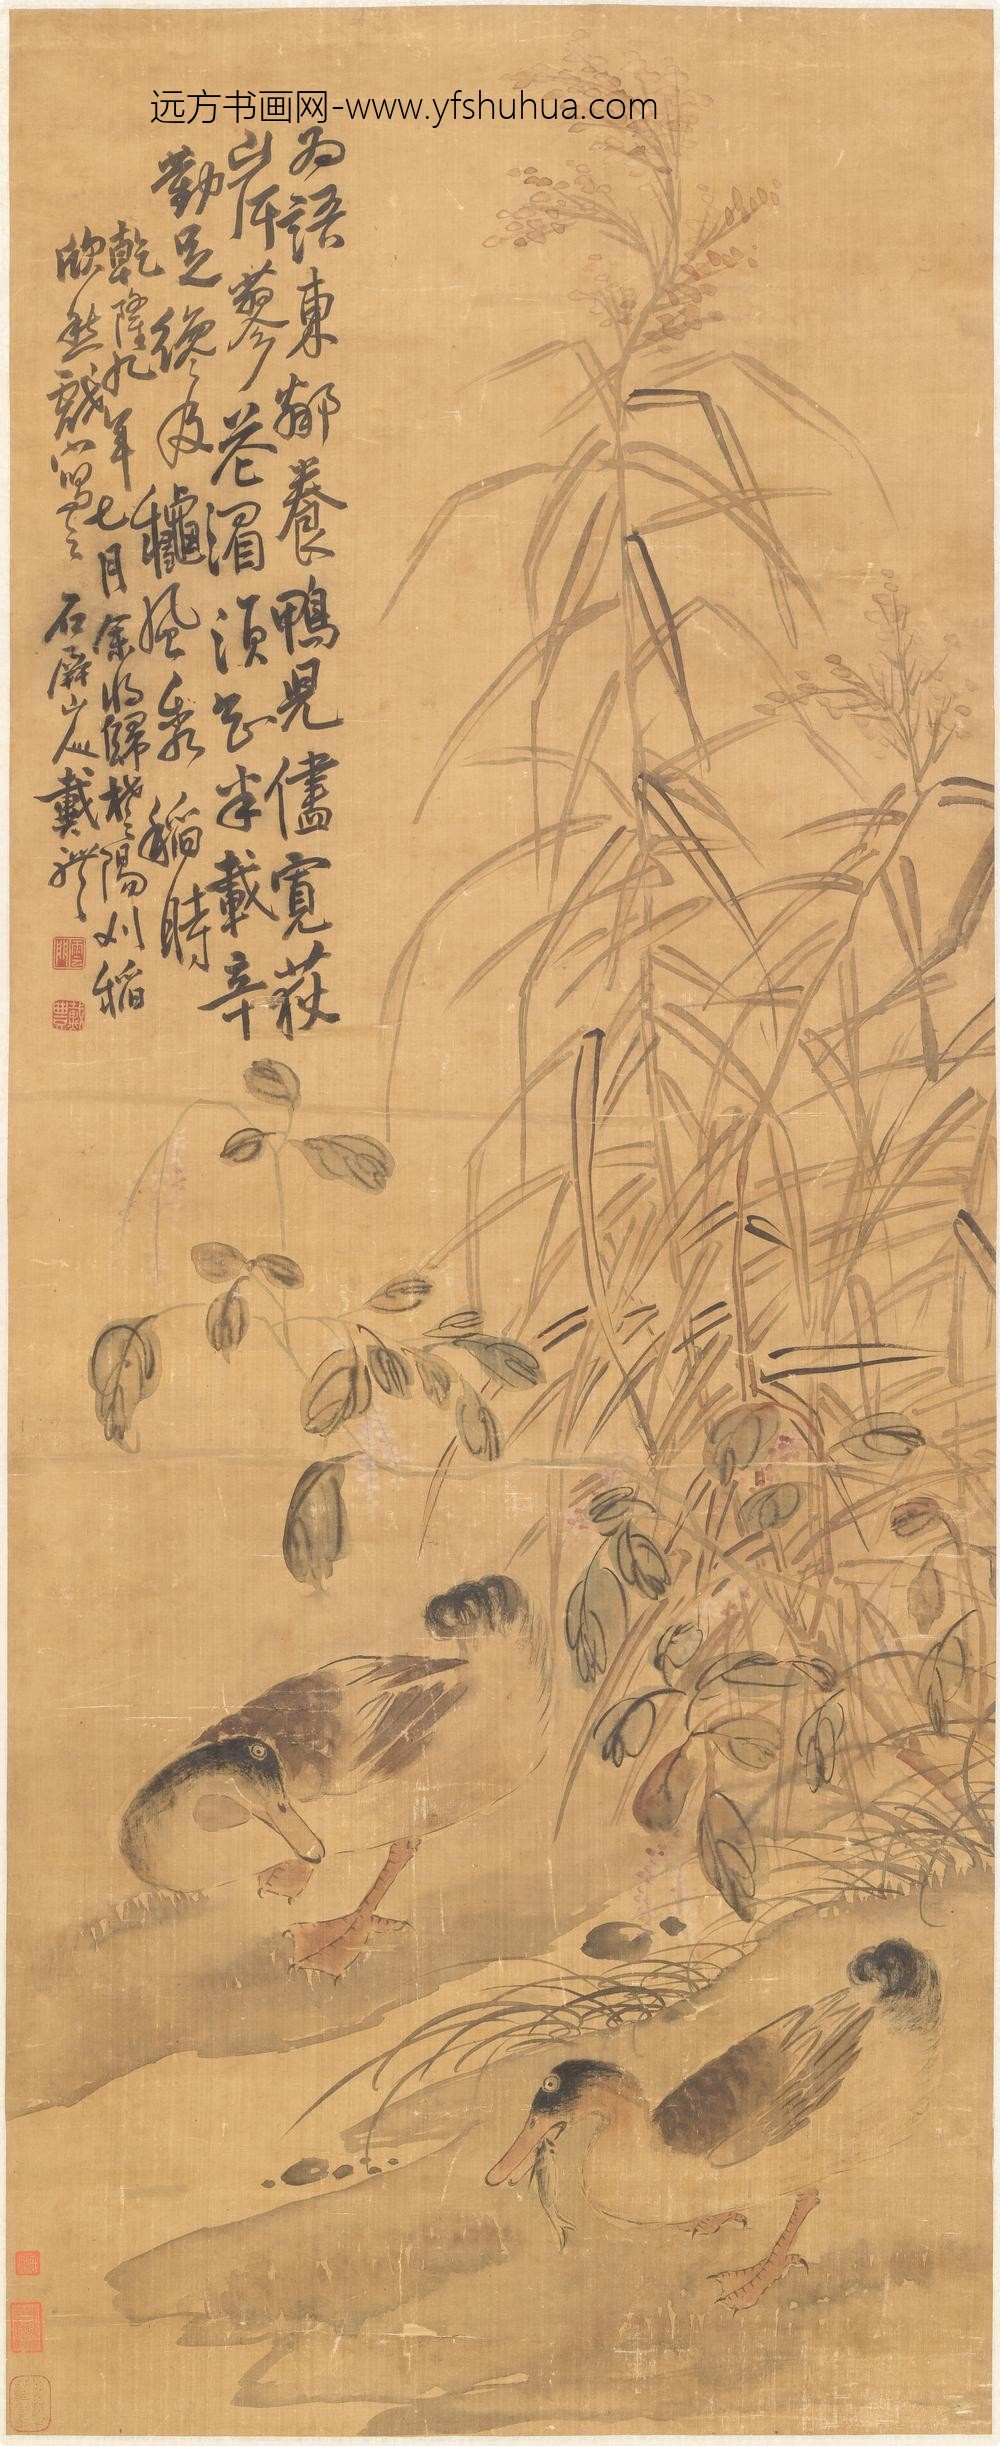 远方书画网-www.yfshuhua.com
为语东鄰養鴨兒儘寬荻
岸蓼花湄須知半載辛
勤足總爲
風香稻時
乾隆九年七月余將歸楚陽刈稻
欣然戲寫
石屏山人戴禮